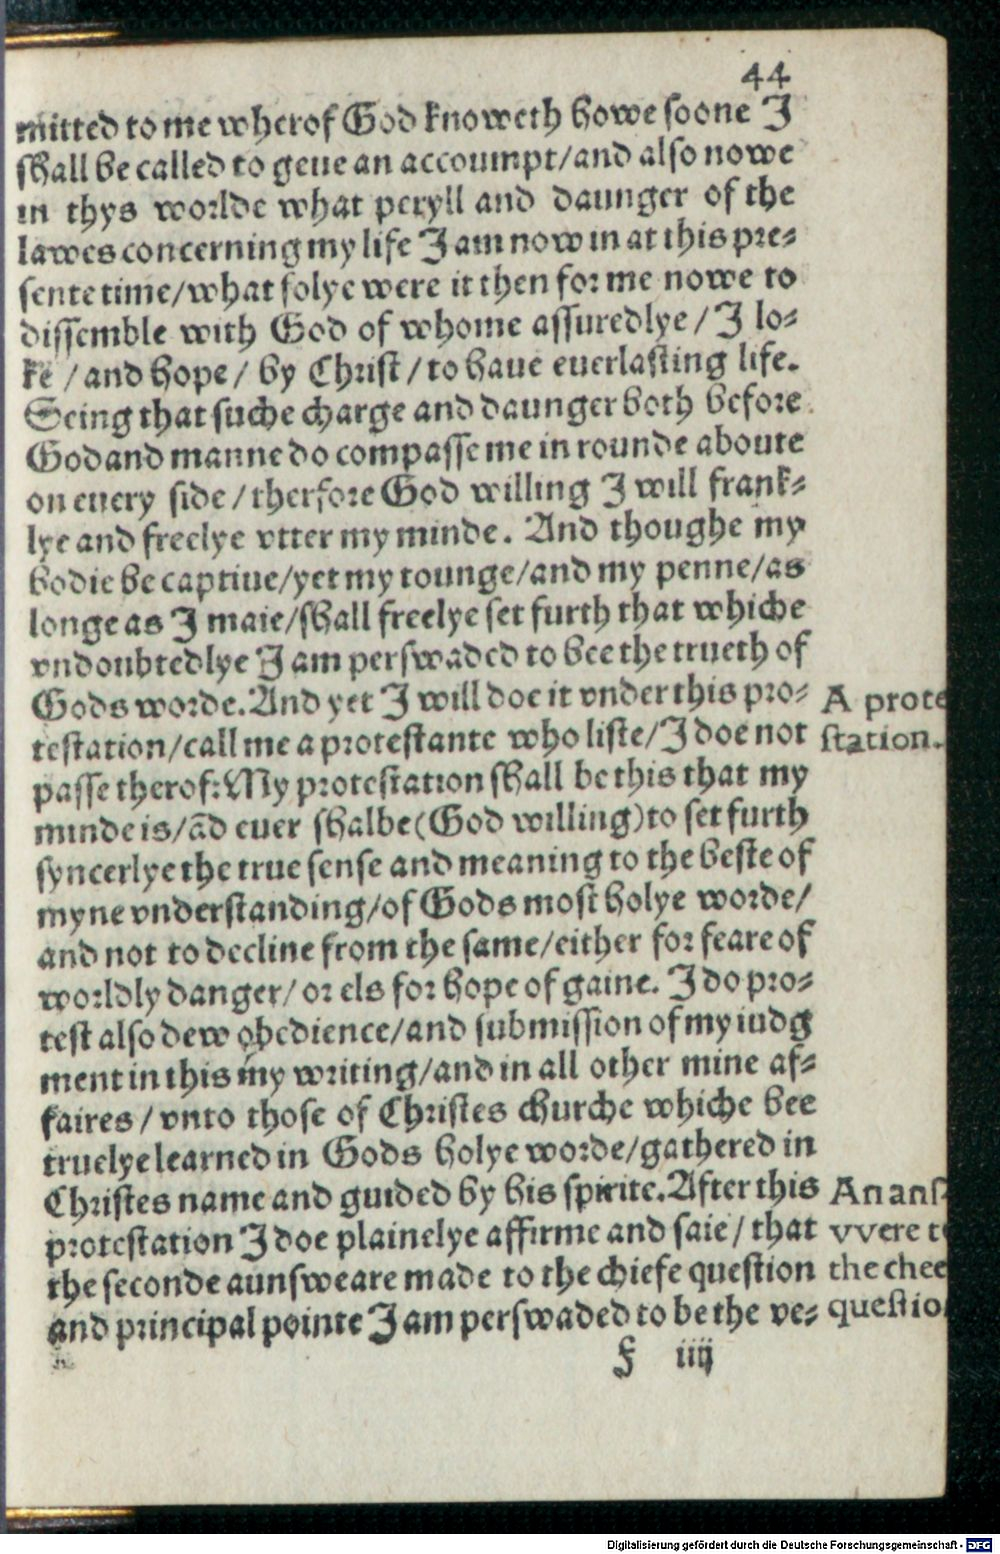 44
mitted to me wherof God knoweth howe soone I
shall be called to geue an accoumpt/and also nowe
in thys worlde what peryll and daunger of the
lawes concerning my life I am now in at this pre⸗
sente time/what folye were it then for me nowe to
dissemble with God of whome assuredlye/I lo⸗
ke/and hope/by Christ/to haue euerlasting life.
Seing that suche charge and daunger both before
God and manne do compasse me in rounde aboute
on euery side/therfore God willing I will frank⸗
lye and freelye vtter my minde. And thoughe my
bodie be captiue/yet my tounge/and my penne/as
longe as I maie/shall freelye set furth that whiche
vndoubtedlye I am perswaded to bee the trueth of
Gods worde. And yet I will doe it vnder this pro⸗
testation/call me a protestante who liste/I doe not
passe therof: My protestation shall be this that my
minde is/ãd euer shalbe (God willing) to set furth
syncerlye the true sense and meaning to the beste of
myne vnderstanding/of Gods most holye worde/
and not to decline from the same/either for feare of
worldly danger/or els for hope of gaine. I do pro⸗
test also dew obedience/and submission of my iudg
ment in this my writing/and in all other mine af⸗
faires/vnto those of Christes churche whiche bee
truelye learned in Gods holye worde/gathered in
Christes name and guided by his spirite. After this
protestation I doe plainelye affirme and saie/that
the seconde aunsweare made to the chiefe question
and principal pointe I am perswaded to be the ve⸗
F iiij
A prote
station.
An ans
vvere t
the chee
questio
Digitalisierung gefördert durch die Deutsche Forschungsgemeinschaft - DFG